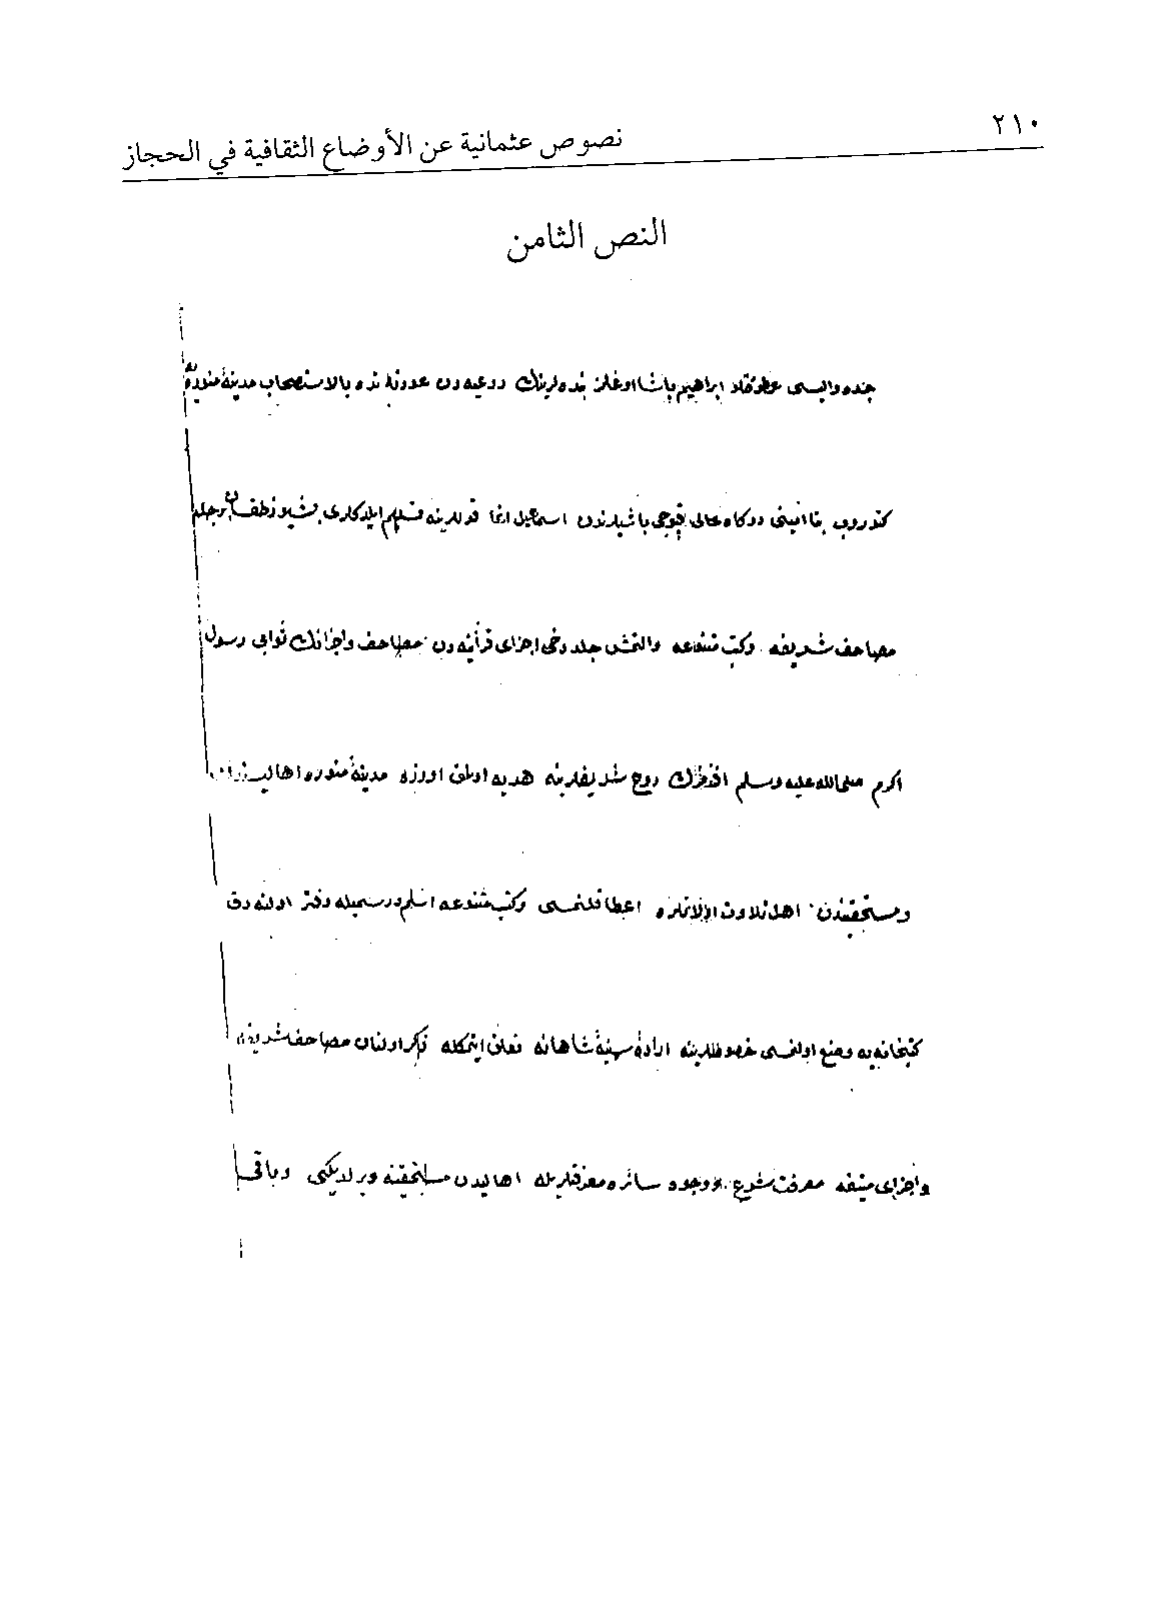 ٢١٠
نصوص عثمانية عن الأوضاع الثقافية في الحجاز
النص الثامن
جده واليسى عطوفتلو ابراهيم پاشا اوغلى بنده لرينك درعيه دن عودتنده بالاستصحاب مدينۀ منوره يه
كتوروب بقا ايتدى دركاه عالى قپوجى باشيلرندن اسماعيل اغا قوللرينه تسليم ايلدكارى بشيوز طقسان بر جلد
مصاحف شريفه وكتب متنوعه والتمش جلد دخى اجزاى قرآنيه دن مصاحف واجزانك ثوابى رسول
اكرم صلى الله عليه وسلم افندمزك روح شريفلرينه هديه اولمق اوزره مدينۀ منوره اهاليسندن
ومستحقيندن اهل تلاوت اولانلره اعطا قلنمسى وكتب متنوعه اسلم ورسميله دفتر اولنه رق
كتبخانه يه وضع اولنمسى خصوصلرينه ارادۀ سنيۀ شاهانه تعلق ايتمكله ذكر اولنان مصاحف شريفه
واجزاى منيفه معرفت شرع ووجوه سائره معرفتلريله اهاليدن مستحقينه ويرلديكى وباقى